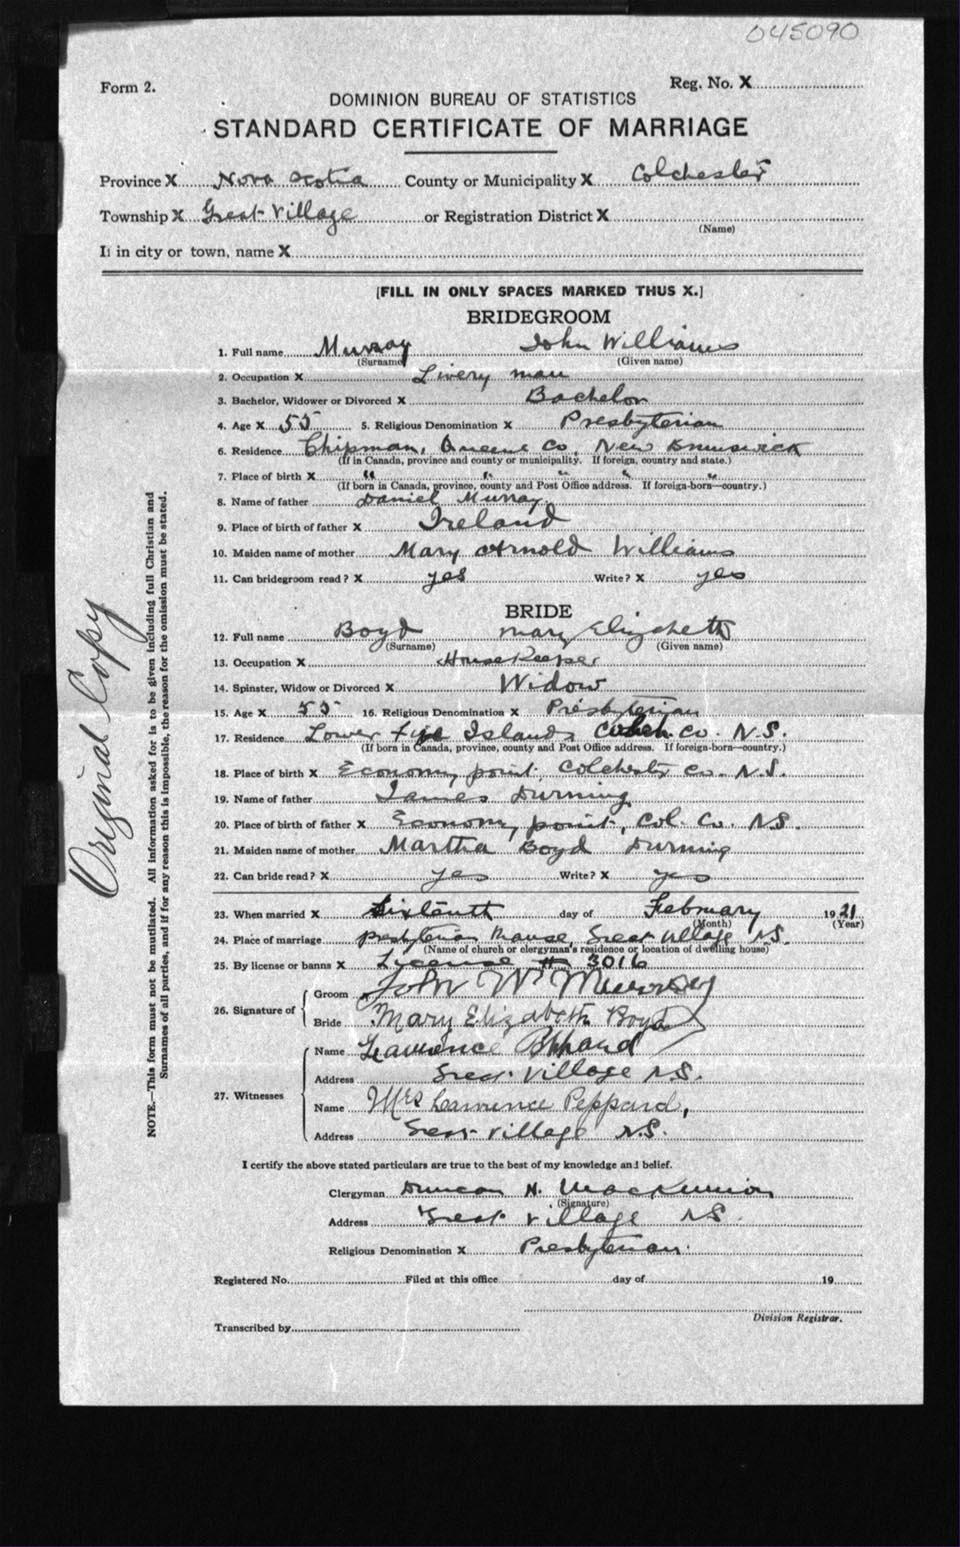 045090
Form 2.
Reg. No. X
DOMINION BUREAU OF STATISTICS
STANDARD CERTIFICATE OF MARRIAGE
Province X Nova Scotia County or Municipality X Colchester
Township X Great Village or Registration District X
(Name)
If in city or town, name X
[FILL IN ONLY SPACES MARKED THUS X.]
BRIDEGROOM
1. Full name Murray John Williams
(Surname) (Given name)
2. Occupation X Livery man
3. Bachelor, Widower or Divorced X Bachelor
4. Age X 55 5. Religious Denomination X Presbyterian
6. Residence Chipman, Queens Co, New Brunswick
(If in Canada, province and county or municipality. If foreign, country and state.)
7. Place of birth X " " " " "
(If born in Canada, province, county and Post Office address. If foreign-born—country.)
8. Name of father Daniel Murray
9. Place of birth of father X Ireland
10. Maiden name of mother Mary Arnold Williams
11. Can bridegroom read? X yes Write? X yes
BRIDE
12. Full name Boyd Mary Elizabeth
(Surname) (Given name)
13. Occupation X House Keeper
14. Spinster, Widow or Divorced X Widow
15. Age X 55 16. Religious Denomination X Presbyterian
17. Residence Lower Five Islands Colch Co. N.S.
(If born in Canada, province, county and Post Office address. If foreign-born—country.)
18. Place of birth X Economy point, Colchester Co. N.S.
19. Name of father James Durning
20. Place of birth of father X Economy point, Col. Co. N.S.
21. Maiden name of mother Martha Boyd Durning
22. Can bride read? X yes Write? X yes
23. When married X Sixteenth day of February 1921
(Month) (Year)
24. Place of marriage Presbyterian Manse, Great Village N.S.
(Name of church or clergyman's residence or location of dwelling house)
25. By license or banns X License # 3016
26. Signature of
Groom John W. Murray
Bride Mary Elizabeth Boyd
27. Witnesses
Name Lawrence Peppard
Address Great Village N.S.
Name Mrs Lawrence Peppard,
Address Great Village N.S.
I certify the above stated particulars are true to the best of my knowledge and belief.
Clergyman Duncan H. MacKinnon
(Signature)
Address Great Village NS.
Religious Denomination X Presbyterian.
Registered No. Filed at this office day of 19
Division Registrar.
Transcribed by
Original Copy
NOTE.—This form must not be mutilated. All information asked for is to be given including full Christian and
Surnames of all parties, and if for any reason this is impossible, the reason for the omission must be stated.